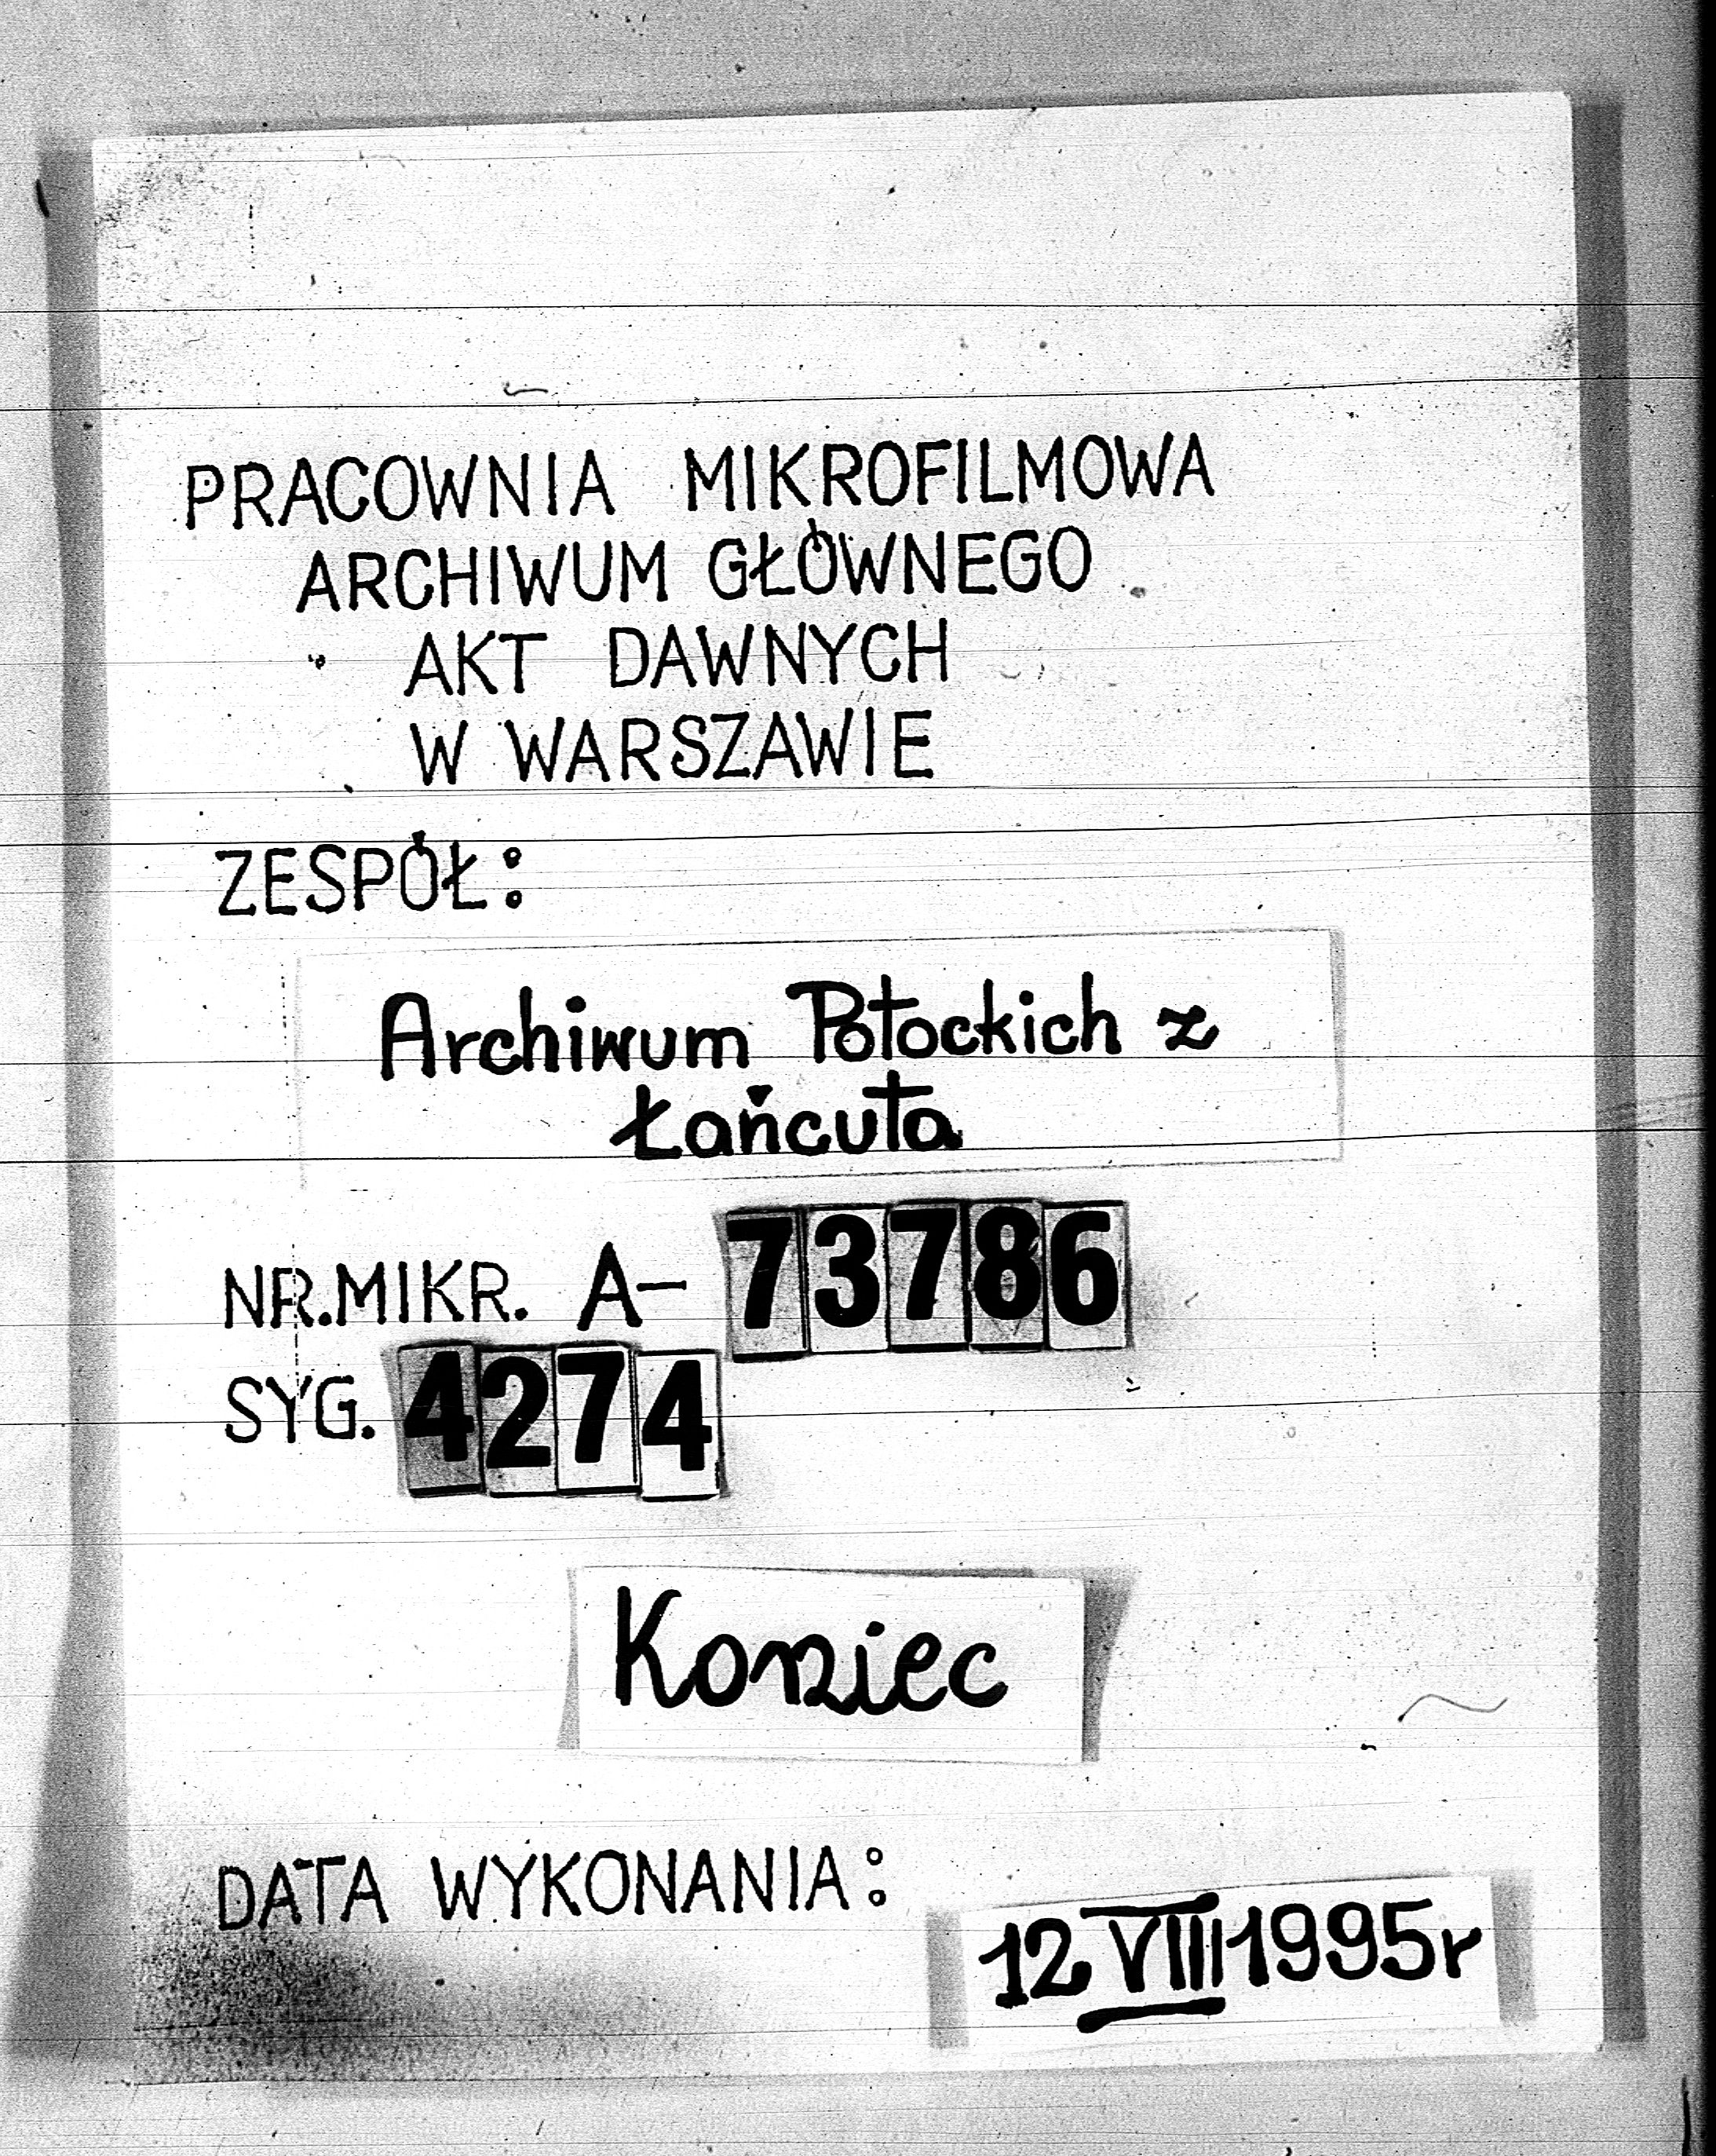 PRACOWNIA MIKROFILMOWA
ARCHIWUM GŁÓWNEGO
AKT DAWNYCH
W WARSZAWIE
ZESPÓŁ:
Archiwum Potockich z
Łańcuta
NR.MIKR. A- 73786
SYG. 4274
Koniec
DATA WYKONANIA:
12 VIII 1995r